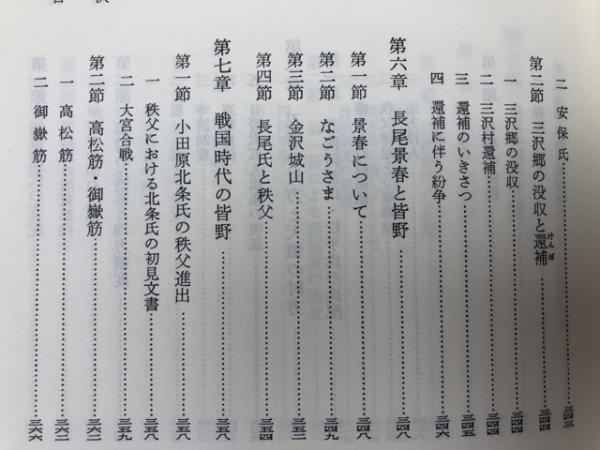 二 安保氏……三四三
第二節 三沢郷の没収と還補……三四四
けんぽ
一 三沢郷の没収……三四四
二 三沢村還補……三四四
三 還補のいきさつ……三四五
四 還補に伴う紛争……三四六
第六章 長尾景春と皆野……三四八
第一節 景春について……三四八
第二節 なごうさま……三四九
第三節 金沢城山……三五二
第四節 長尾氏と秩父……三五四
第七章 戦国時代の皆野……三五八
第一節 小田原北条氏の秩父進出……三五八
一 秩父における北条氏の初見文書……三五八
二 大宮合戦……三五九
第二節 高松筋・御嶽筋……三六二
一 高松筋……三六二
二 御嶽筋……三六六